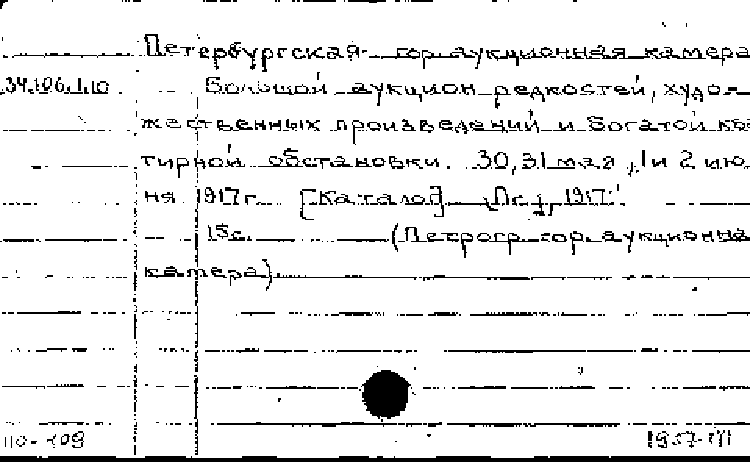 Петербургская гор. аукционная камера
34.106.1.10 Большой аукцион редкостей, худо-
жественных произведений и богатой ква
тирной обстановки. 30, 31 мая, 1 и 2 ию-
ня 1917 г. [Каталог]. Пг., 1917.
15 с. (Петрогр. гор. аукционная
камера).
1957-